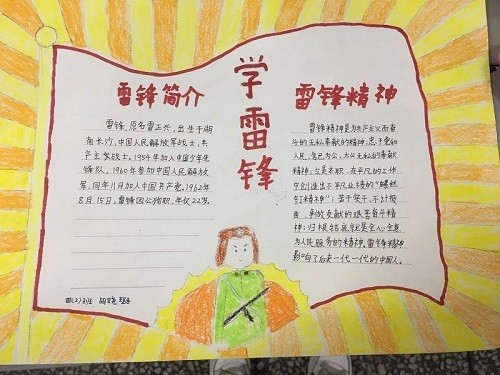 学雷锋
雷锋简介
雷锋,原名雷正兴,出生于湖
南长沙,中国人民解放军战士,共
产主义战士。1954年加入中国少年先
锋队,1960年参加中国人民解放
军,同年11月加入中国共产党。1962年
8月15日,雷锋因公殉职,年仅22岁。
雷锋精神
雷锋精神是为共产主义而奋
斗的无私奉献的精神;忠于党和
人民、舍己为公、大公无私的奉献
精神;立足本职、在平凡的工作
中创造出不平凡业绩的“螺丝
钉精神”;苦干实干、不计报
酬、争做贡献的艰苦奋斗精
神;归根结底就是全心全意
为人民服务的精神。雷锋精神
影响了后来一代一代的中国人。
四(2)班